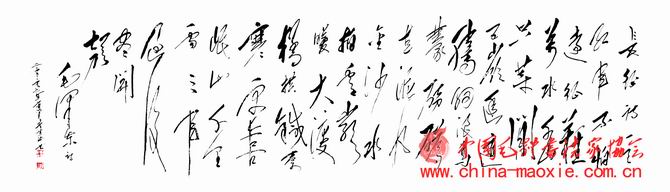 长征诗一首
红军不怕
远征难
万水千山
只等闲
五岭逶迤
腾细浪乌
蒙磅礴
走泥丸
金沙水
拍云崖
暖大渡
桥横铁索
寒更喜
岷山千里
雪三军
过后
尽开
颜
毛泽东诗
中国毛体书法家协会
www.china-maoxie.com.cn